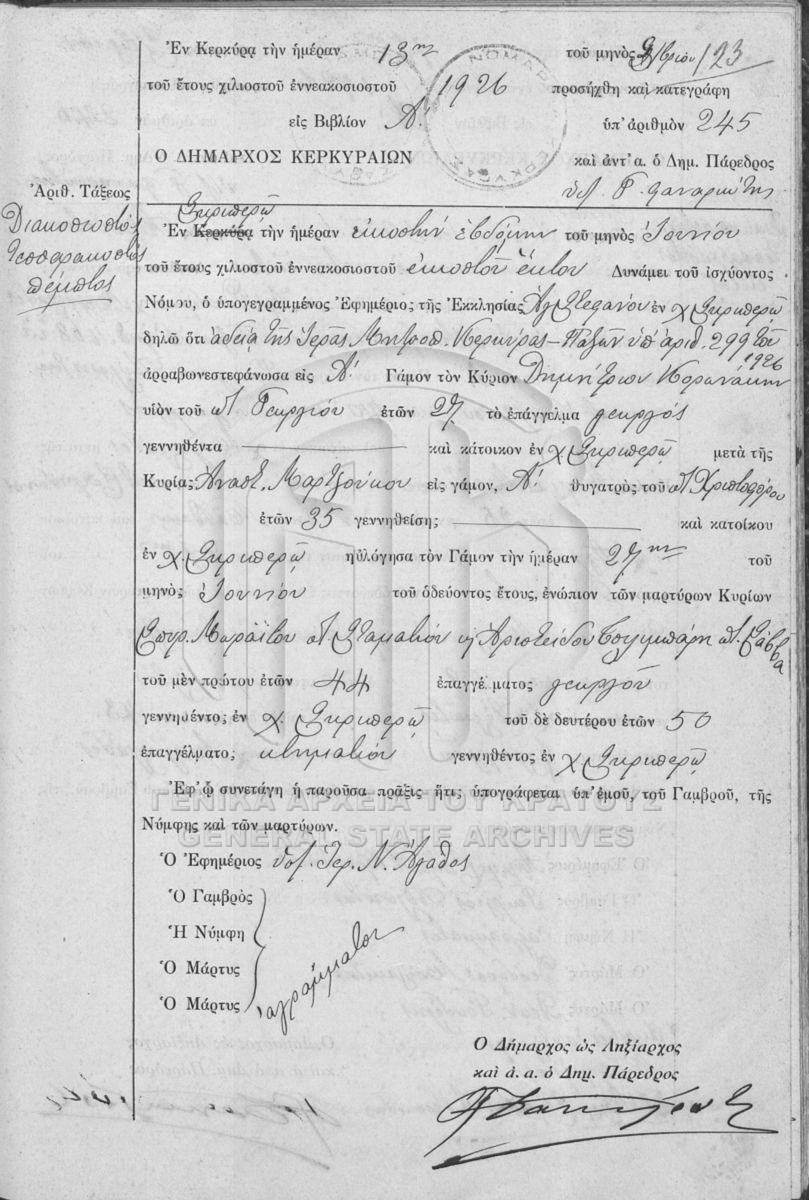 Ἐν Κερκύρᾳ τὴν ἡμέραν 13ην τοῦ μηνὸς 9βρίου /23
τοῦ ἔτους χιλιοστοῦ ἐννεακοσιοστοῦ 1926 προσήχθη καὶ κατεγράφη
εἰς Βιβλίον Α΄. ὑπ' ἀριθμὸν 245
Ο ΔΗΜΑΡΧΟΣ ΚΕΡΚΥΡΑΙΩΝ καὶ ἀντ' α. ὁ Δημ. Πάρεδρος
Ἀριθ. Τάξεως
Διακοσιοστὸς
τεσσαρακοστὸς
πέμπτος
Σκριπερῷ
Ἐν Κερκύρᾳ τὴν ἡμέραν εἰκοστὴν ἑβδόμην τοῦ μηνὸς Ἰουνίου
τοῦ ἔτους χιλιοστοῦ ἐννεακοσιοστοῦ εἰκοστοῦ ἕκτου Δυνάμει τοῦ ἰσχύοντος
Νόμου, ὁ ὑπογεγραμμένος Ἐφημέριος τῆς Ἐκκλησίας Ἁγ Στεφάνου ἐν χ. Σκριπερῷ
δηλῶ ὅτι ἀδείᾳ τῆς Ἱερᾶς Μητροπ. Κερκύρας – Παξῶν ὑπ' ἀριθ. 299 τοῦ
1926
ἀρραβωνεστεφάνωσα εἰς Α΄ Γάμον τὸν Κύριον Δημήτριον Κορωνάκην
υἱὸν τοῦ π΄ Γεωργίου ἐτῶν 27 τὸ ἐπάγγελμα γεωργός
γεννηθέντα καὶ κάτοικον ἐν χ. Σκριπερῷ μετὰ τῆς
Κυρίας Ἀναστ. Μαρτζούκου εἰς γάμον, Α΄ θυγατρὸς τοῦ π΄ Χριστοφόρου
ἐτῶν 35 γεννηθείσης καὶ κατοίκου
ἐν χ. Σκριπερῷ ηὐλόγησα τὸν Γάμον τὴν ἡμέραν 27ην τοῦ
μηνὸς Ἰουνίου τοῦ ὁδεύοντος ἔτους, ἐνώπιον τῶν μαρτύρων Κυρίων
Σπυρ. Μαραΐτου π΄ Σταματίου κ Ἀριστείδου π΄. Σάββα
τοῦ μὲν πρώτου ἐτῶν 44 ἐπαγγέματος γεωργοῦ
γεννηθέντος ἐν χ. Σκριπερῷ τοῦ δὲ δευτέρου ἐτῶν 50
ἐπαγγέλματος κτηματίου γεννηθέντος ἐν χ Σκριπερῷ
Ἐφ' ᾧ συνετάγη ἡ παροῦσα πρᾶξις ἥτις ὑπογράφεται ὑπ' ἐμοῦ, τοῦ Γαμβροῦ, τῆς
Νύμφης καὶ τῶν μαρτύρων.
ΓΕΝΙΚΑ ΑΡΧΕΙΑ ΤΟΥ ΚΡΑΤΟΥΣ
GENERAL STATE ARCHIVES
Ὁ Ἐφημέριος Ἱερ. Ν. Ἄγαθος
Ὁ Γαμβρὸς
Ἡ Νύμφη
Ὁ Μάρτυς
Ὁ Μάρτυς
ἀγράμματοι
Ὁ Δήμαρχος ὡς Ληξίαρχος
καὶ ἀ. α. ὁ Δημ. Πάρεδρος